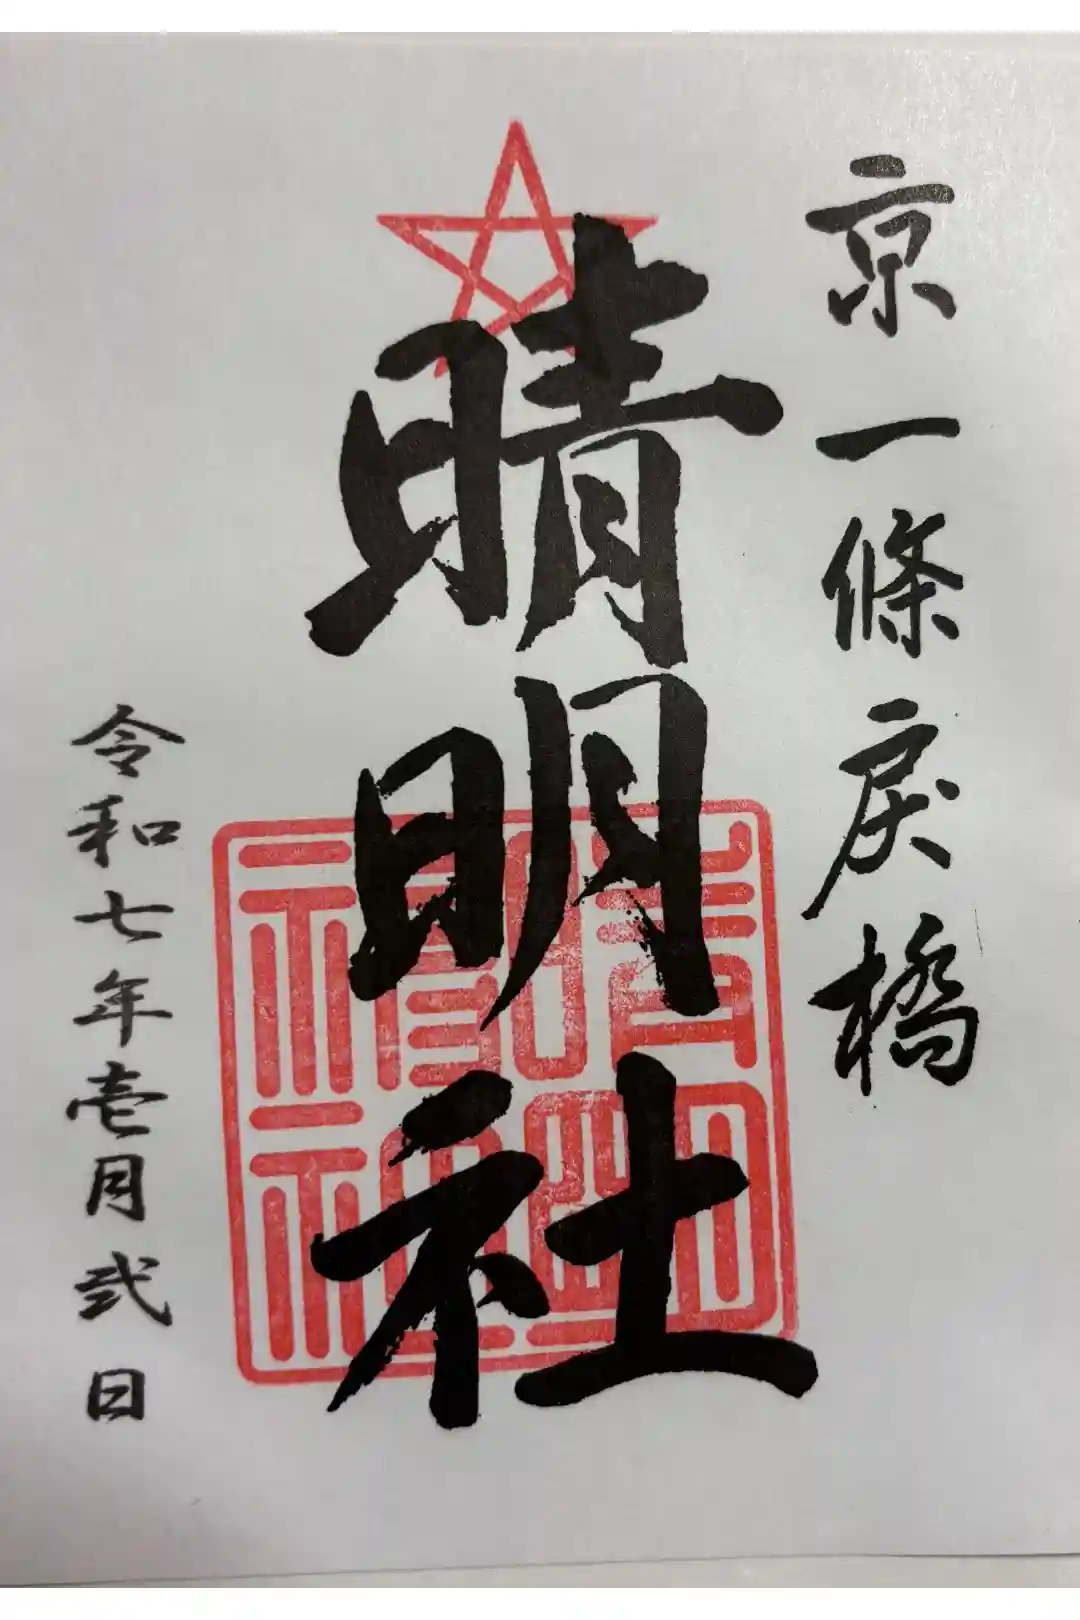 京一條戻橋
晴明社
晴明神社
令和七年壱月弐日